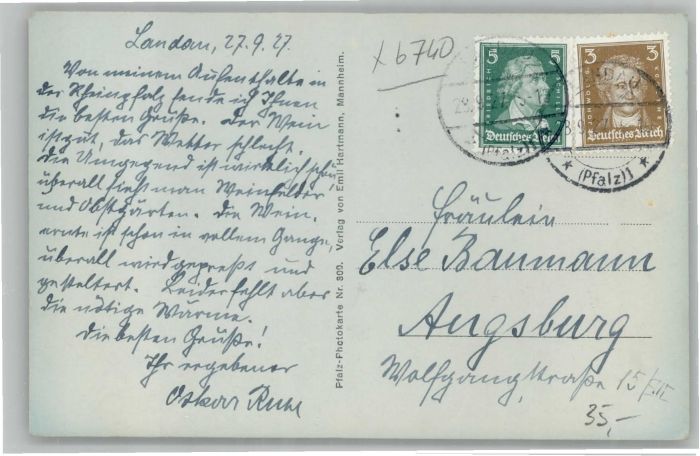 Landau, 27.9.27.
Von meinem Aufenthalte in
der Rheinpfalz sende ich Ihnen
die besten Grüße. Der Wein
ist gut, das Wetter schlecht.
Die Umgegend ist wirklich schön,
überall sieht man Weinfelder
und Obstgärten. Die Wein-
ernte ist schon in vollem Gange,
überall wird gepreßt und
gekeltert. Leider fehlt aber
die nötige Wärme.
Die besten Grüße!
Ihr ergebener
Oskar
Pfalz-Photokarte Nr. 300. Verlag von Emil Hartmann, Mannheim.
x 6740
5
FRIEDRICH
Deutsches Reich
3
Deutsches Reich
LANDAU
(Pfalz)
(Pfalz)1
Fräulein
Else Baumann
Augsburg
Wolfgangstraße 15/III
35,-